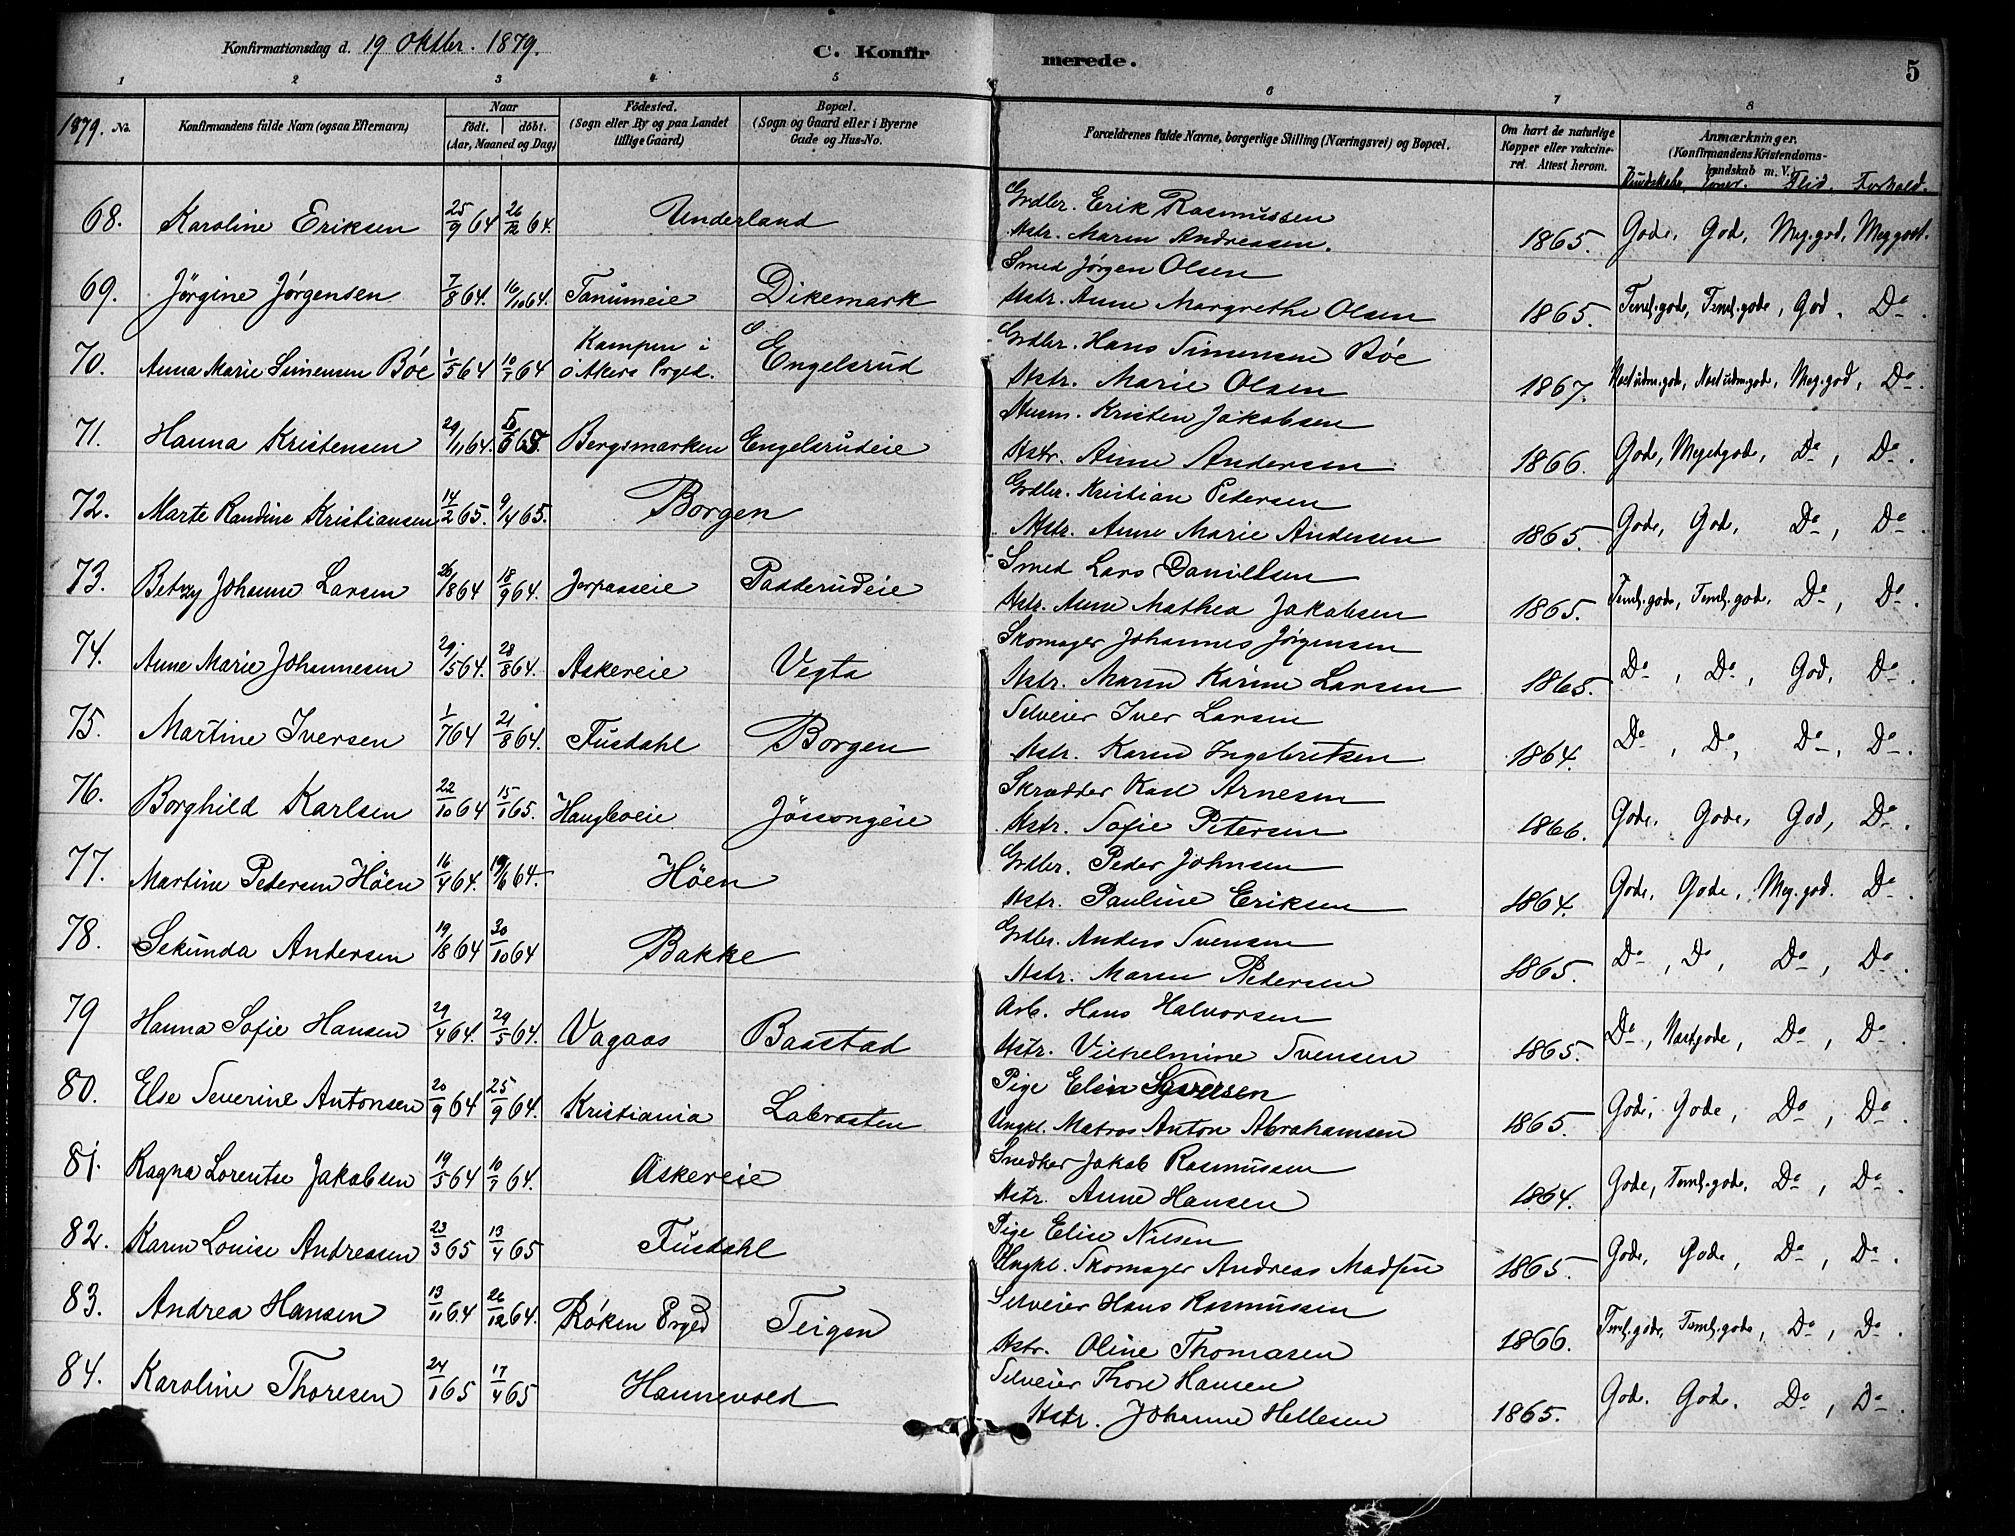 Konfirmationsdag d. 19 Oktbr. 1879.
C. Konfirmerede.
5
1 2 3 4 5 6 7 8
1879. No.
Konfirmandens fulde Navn (ogsaa Efternavn)
Naar
födt. döbt.
(Aar, Maaned og Dag)
Födested.
(Sogn eller By og paa Landet
tillige Gaard)
Bopæl.
(Sogn og Gaard eller i Byerne
Gade og Hus-No.
Forældrenes fulde Navne, borgerlige Stilling (Næringsvei) og Bopæl.
Om havt de naturlige
Kopper eller vakcine-
ret. Attest herom.
Anmærkninger.
(Konfirmandens Kristendoms-
kundskab m. V.)
Kundskab, Evner. Flid. Forhold.
68. Karoline Eriksen 25/9 64 26/12 64. Underland Grdbr. Erik Rasmussen
Hstr. Maren Andresen. 1865. Gode, God, Meg.god, Meg godt.
69. Jörgine Jörgensen 7/8 64. 16/10 64. Tanumeie Dikemark Smed Jörgen Olsen
Hstr. Anne Margrethe Olsen 1865. Teml.gode, Teml.gode, God, Do.
70. Anna Marie Simensen Böe 1/5 64 10/7 64 Kampen i Akers Prgjd. Engelsrud Grdbr. Hans Simensen Böe
Hstr. Marie Olsen 1867. Næst udm.gode, Næst udm.gode, Meg.god, Do.
71. Hanna Kristensen 29/11 64. Bergsmarken Engelsrudeie Husm. Kristen Jakobsen
Hstr. Anne Andersen 1866. Gode, Megetgode, Do, Do.
72. Marte Randine Kristiansen 14/2 65. 9/4 65. Borgen Grdbr. Kristian Pedersen
Hstr. Anne Marie Andersen 1865. Gode, God, Do, Do.
73. Betzy Johanne Larsen 26/1 64 18/9 64. Jorpasseie Padderudeie Smed Lars Danielsen
Hstr. Anne Mathea Jakobsen 1865. Teml.gode, Teml.gode, Do, Do.
74. Anne Marie Johannesen 29/5 64. 28/8 64. Askereie Vegta Skomager Johannes Jörgensen
Hstr. Maren Karine Larsen 1865. Do, Do, God, Do.
75. Martine Iversen 1/7 64 21/8 64. Fusdahl Borgen Selveier Iver Larsen
Hstr. Karen Ingebretsen 1864. Do, Do, Do, Do.
76. Borghild Karlsen 22/10 64 15/1 65. Haugboeie Jössongeie Skrædder Karl Arnesen
Hstr. Sofie Petersen 1866. Gode. Gode, God, Do.
77. Martine Pedersen Höen 16/4 64. 19/6 64. Höen Grdbr. Peder Johnsen
Hstr. Pauline Eriksen 1864. Gode, Gode, Meg.god. Do.
78. Sekunda Andersen 19/8 64 30/10 64 Bakke Grdbr. Anders Svensen
Hstr. Maren Pedersen 1865. Do, Do, Do, Do.
79 Hanna Sofie Hansen 29/4 64. 29/5 64. Vagaas Baastad Arb. Hans Halvorsen
Hstr. Vilhelmine Svensen 1865. Do, Do, Do.
80. Else Severine Antonsen 20/9 64 25/9 64. Kristiania Labraaten Pige Elen Syversen
Ungkl. Matros Anton Abrahamsen 1865. Gode, Gode, Do, Do.
81. Ragna Lorentse Jakobsen 19/5 64 10/7 64. Askereie Snedker Jakob Rasmussen
Hstr. Anne Hansen 1864. Gode, Teml.gode, Do, Do.
82. Karen Louise Andreasen 23/3 65 13/4 65 Fusdahl Pige Elise Nilsen
Ungkl. Skomager Andreas Madsen 1865. Gode, Gode, Do, Do.
83. Andrea Hansen 13/11 64 26/12 64. Röken Prgjd Teigen Selveier Hans Rasmussen
Hstr. Oline Thomasen 1866. Teml.gode, Teml.gode, Do, Do.
84. Karoline Thoresen 24/1 65 17/4 65 Hannevold Selveier Thore Hansen
Hstr. Johanne Hellesen 1865. Gode. Gode. Do, Do.